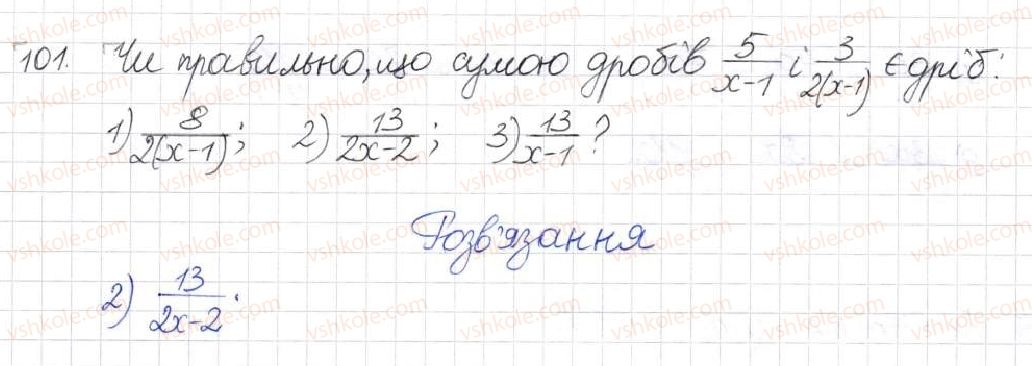 101. Чи правильно, що сумою дробів 5/(x-1) і 3/(2(x-1)) є дріб:
1) 8/(2(x-1)); 2) 13/(2x-2); 3) 13/(x-1)?
Розв'язання
2) 13/(2x-2).